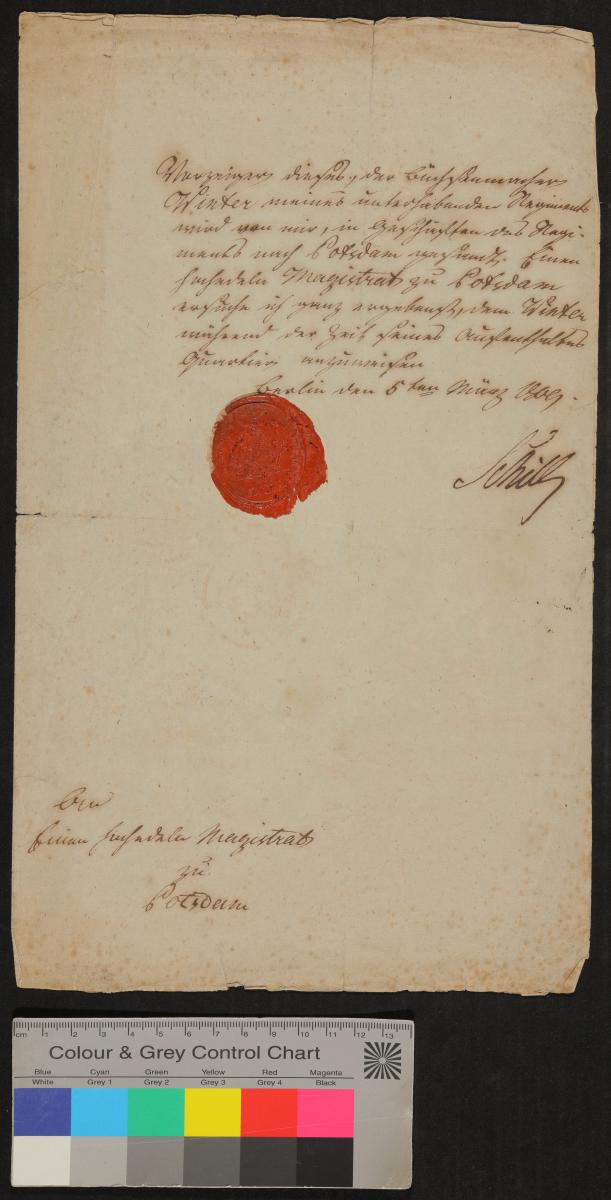 Vorzeiger dieses, der Büchsenmacher
Winter meines unterhabenden Regiments
wird von mir, in Geschäften des Regi-
ments nach Potsdam gesandt. Einen
hochedeln Magistrat zu Potsdam
ersuche ich ganz ergebenst, dem Winter
während der Zeit seines Aufenthaltes
Quartier anzuweisen
Berlin den 5ten März 1809.
Schill
An
Einen hochedeln Magistrat
zu
Potsdam
cm 1 2 3 4 5 6 7 8 9 10 11 12 13
Colour & Grey Control Chart
Blue Cyan Green Yellow Red Magenta
White Grey 1 Grey 2 Grey 3 Grey 4 Black